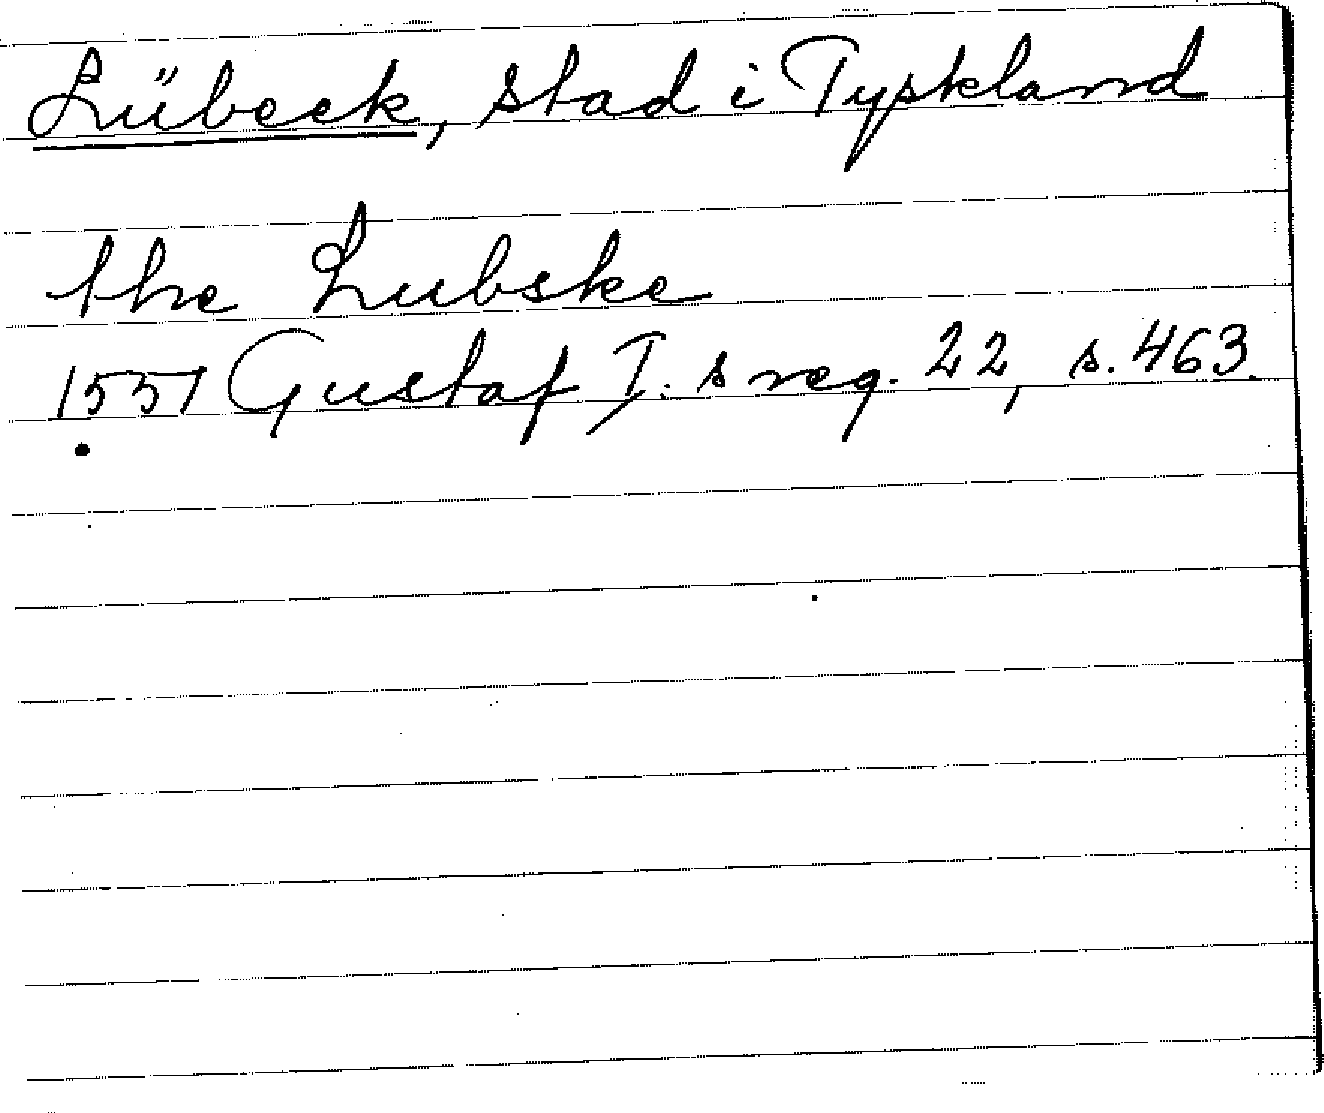 Lübeck, stad i Tyskland
the Lubske
1551 Gustaf I:s reg. 22, s. 463.